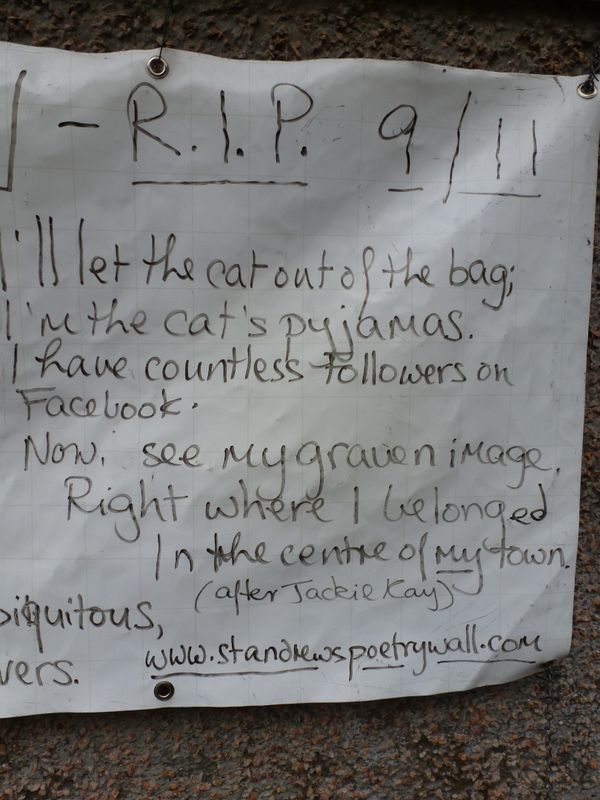 - R.I.P. 9/11
I'll let the cat out of the bag;
I'm the cat's pyjamas.
I have countless followers on
Facebook.
Now, see my graven image.
Right where I belonged
In the centre of my town.
(after Jackie Kay)
biquitous,
vers.
www.standrewspoetrywall.com